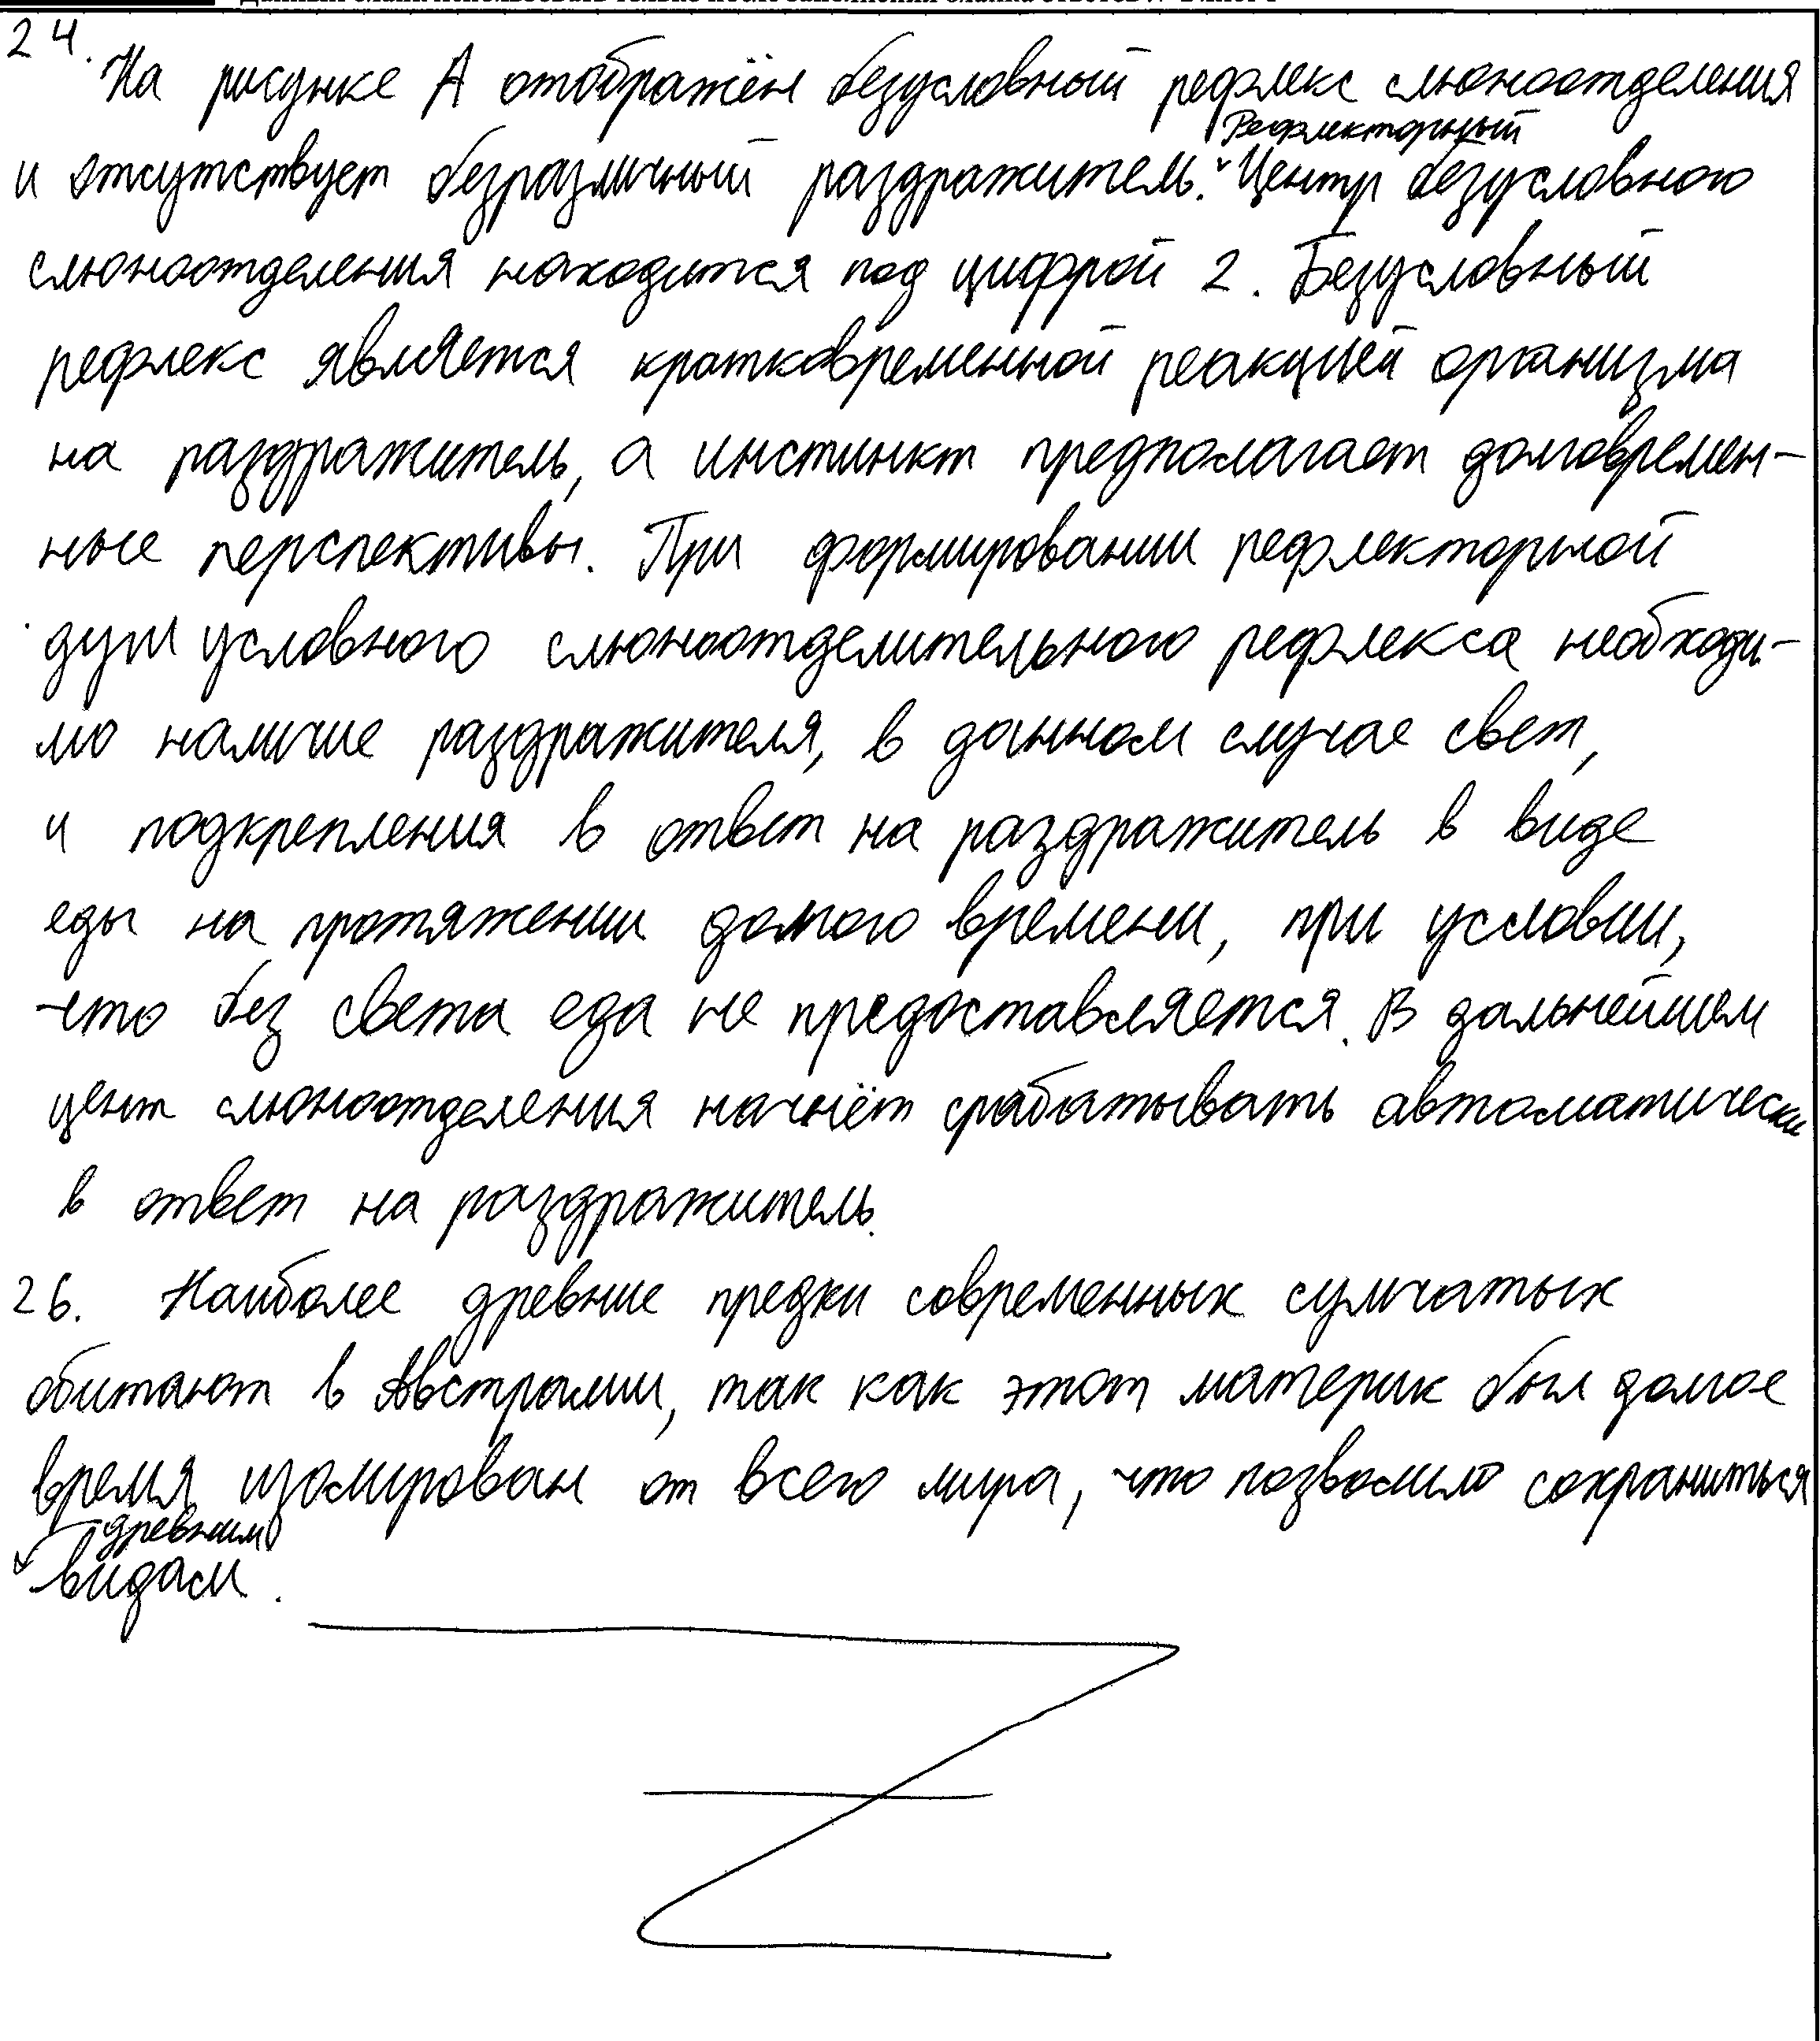 24.
На рисунке А отображён безусловный рефлекс слюноотделения
и отсутствует безразличный раздражитель. Рефлекторный Центр безусловного
слюноотделения находится под цифрой 2. Безусловный
рефлекс является кратковременной реакцией организма
на раздражитель, а инстинкт предполагает долговремен-
ные перспективы. При формировании рефлекторной
дуги условного слюноотделительного рефлекса необходи-
мо наличие раздражителя, в данном случае свет,
и подкрепления в ответ на раздражитель в виде
еды на протяжении долгого времени, при условии,
что без света еда не предоставляется. В дальнейшем
цент слюноотделения начнёт срабатывать автоматически
в ответ на раздражитель.
26. Наиболее древние предки современных сумчатых
обитают в Австралии, так как этот материк был долгое
время изолирован от всего мира, что позволило сохраниться
древним видам.